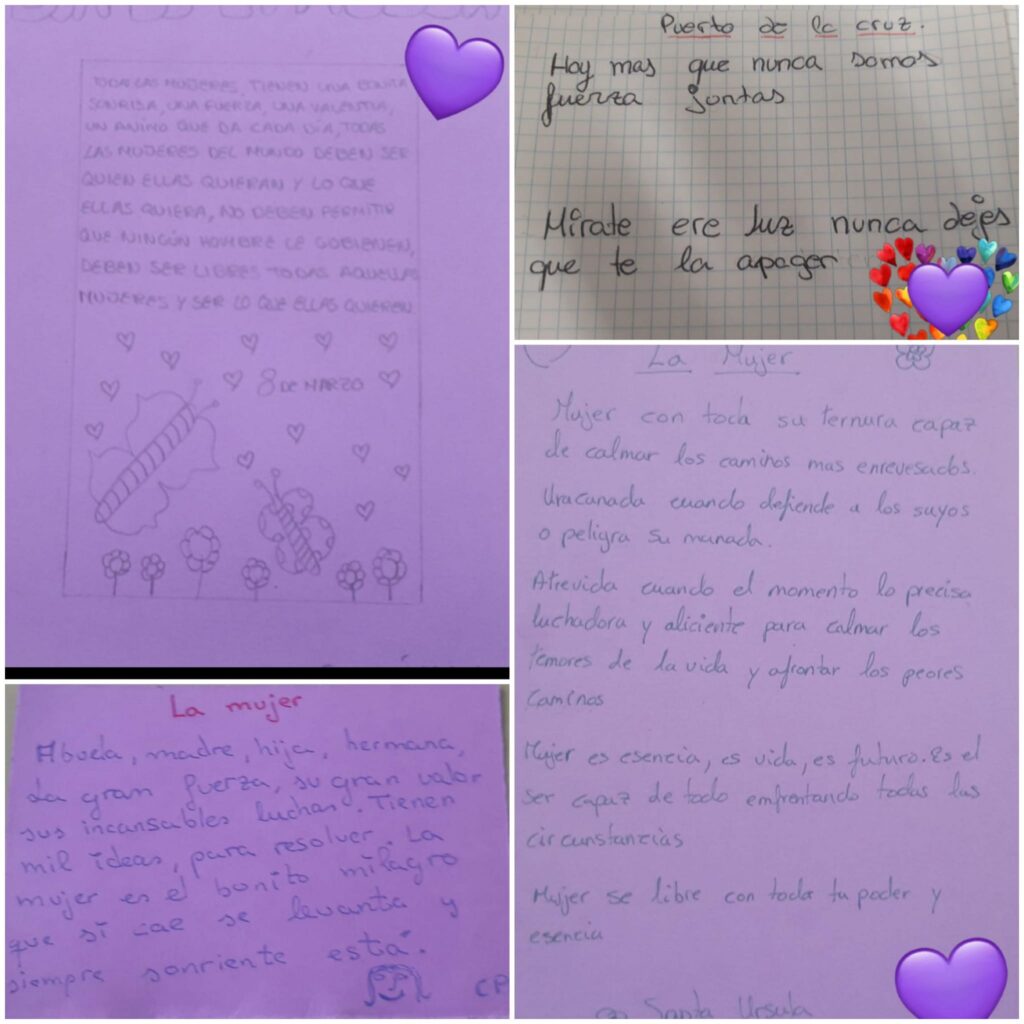 TODA LAS MUJERES TIENEN UNA BONITA
SONRISA, UNA FUERZA, UNA VALENTIA,
UN ANIMO QUE DA CADA DÍA, TODAS
LAS MUJERES DEL MUNDO DEBEN SER
QUIEN ELLAS QUIERAN Y LO QUE
ELLAS QUIERA, NO DEBEN PERMITIR
QUE NINGÚN HOMBRE LE GOBIENEN,
DEBEN SER LIBRES TODAS AQUELLAS
MUJERES Y SER LO QUE ELLAS QUIEREN
8 DE MARZO
Puerto de la cruz.
Hoy mas que nunca somos
fuerza juntas
Mírate ere luz nunca dejes
que te la apager
La Mujer
Mujer con toda su ternura capaz
de calmar los caminos mas enrevesados.
Uracanada cuando defiende a los suyos
o peligra su manada.
Atrevida cuando el momento lo precisa
luchadora y aliciente para calmar los
temores de la vida y afrontar los peores
caminos
Mujer es esencia, es vida, es futuro. Es el
ser capaz de todo emfrentando todas las
circunstancias
Mujer se libre con toda tu poder y
esencia
Santa Ursula
La mujer
Abuela, madre, hija, hermana,
La gran fuerza, su gran valor
sus incansables luchas. Tienen
mil ideas, para resolver. La
mujer es el bonito milagro
que si cae se levanta y
siempre sonriente está.
CP